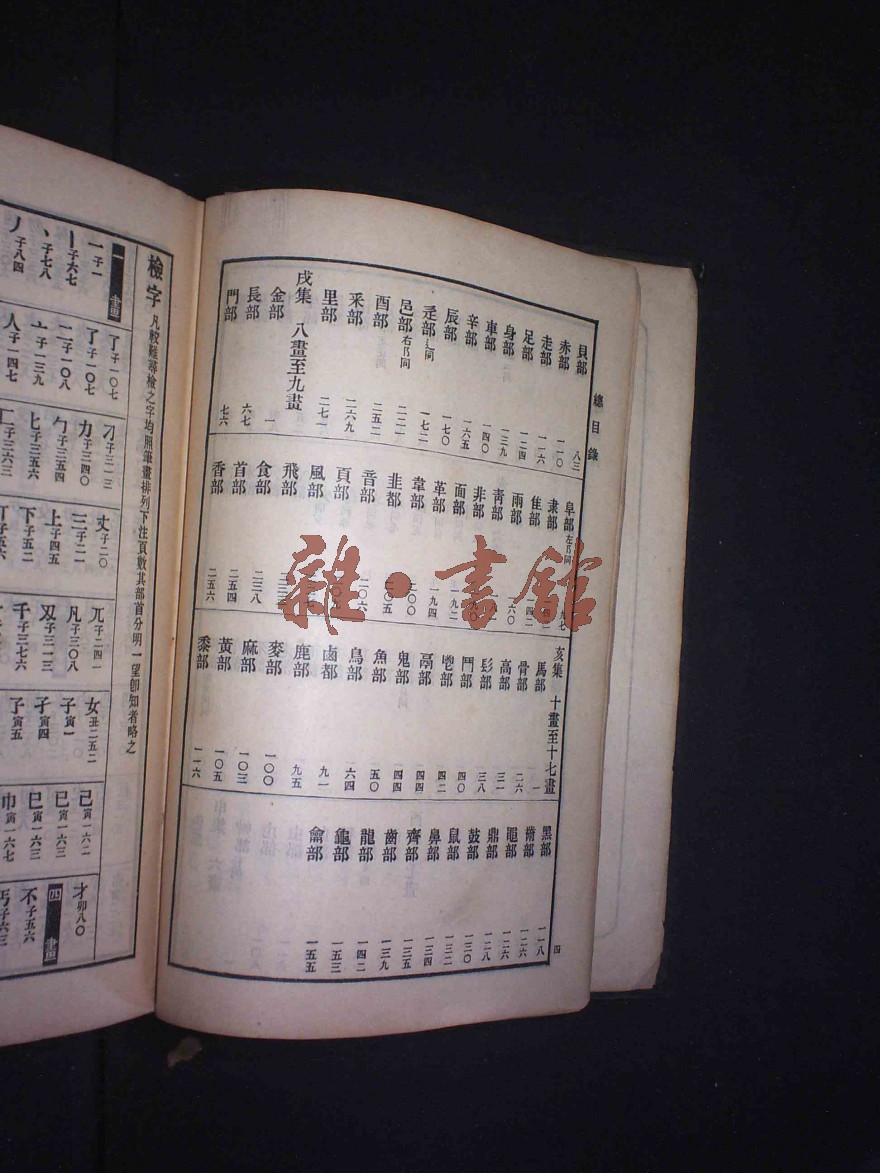 總目錄
貝部 八三
赤部 一一〇
走部 一一六
足部 一二四
身部 一三九
車部 一四〇
辛部 一六五
辰部 一七〇
辵部 辶同 一七二
邑部 右阝同 二二一
酉部 二五二
釆部 二六九
里部 二七一
戌集 八畫至九畫
金部 一
長部 六七
門部 七六
阜部 左阝同
隶部
隹部
雨部
靑部
非部
面部 一九二
革部 一九四
韋部 二〇〇
韭都 二〇五
音部 二〇六
頁部
風部
飛部
食部 二三八
首部 二五四
香部 二五六
亥集 十畫至十七畫
馬部 一
骨部 二六
高部 三一
髟部 三八
鬥部 四〇
鬯部 四二
鬲部 四四
鬼部 四四
魚部 五〇
鳥部 六四
鹵都 九一
鹿部 九五
麥部 一〇〇
麻部 一〇三
黃部 一〇五
黍部 一一六
黑部 一一八
黹部 一二六
黽部 一二六
鼎部 一二八
鼓部 一三〇
鼠部 一三二
鼻部 一三四
齊部 一三五
齒部 一三九
龍部 一四二
龜部 一五三
龠部 一五五
四
檢字 凡較難尋檢之字均照筆畫排列下注頁數其部首分明一望卽知者略之
一畫
一 子一
丨 子六七
丶 子七八
丿 子八四
了 子一〇七
二 子一〇八
亠 子一三九
人 子一四七
刁 子三一三
力 子三四〇
勹 子三五四
匕 子三五六
匚 子三六三
丈 子二〇
三 子二一
上 子四五
下 子五二
兀 子二四一
凡 子三〇八
刄 子三一三
千 子三七六
女 丑二五二
子 寅一
孑 寅四
孓 寅五
己 寅一六二
已 寅一六三
巳 寅一六三
巾 寅一六七
才 卯八〇
四畫
不 子五六
丐 子六三
雜·書館